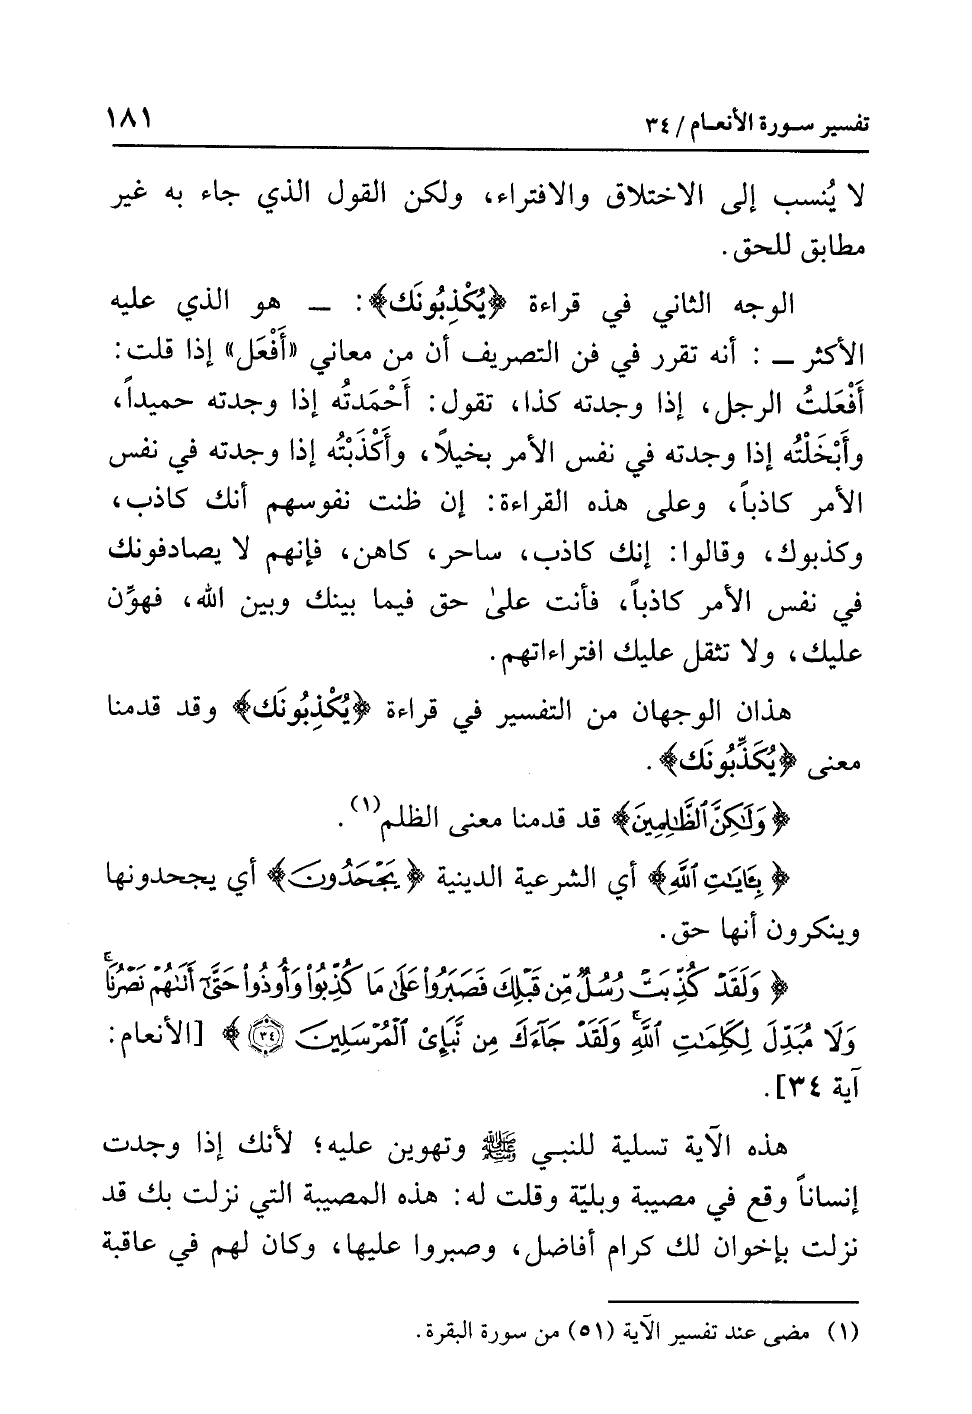 تفسير سورة الأنعام / ٣٤
١٨١
لا يُنسب إلى الاختلاق والافتراء، ولكن القول الذي جاء به غير
مطابق للحق.
الوجه الثاني في قراءة ﴿يُكْذِبُونَك﴾: ــ هو الذي عليه
الأكثر ــ : أنه تقرر في فن التصريف أن من معاني «أَفْعَل» إذا قلت:
أَفْعَلتُ الرجل، إذا وجدته كذا، تقول: أَحْمَدتُه إذا وجدته حميداً،
وأَبْخَلْتُه إذا وجدته في نفس الأمر بخيلاً، وأَكْذَبْتُه إذا وجدته في نفس
الأمر كاذباً، وعلى هذه القراءة: إن ظنت نفوسهم أنك كاذب،
وكذبوك، وقالوا: إنك كاذب، ساحر، كاهن، فإنهم لا يصادفونك
في نفس الأمر كاذباً، فأنت علىٰ حق فيما بينك وبين الله، فهوِّن
عليك، ولا تثقل عليك افتراءاتهم.
هذان الوجهان من التفسير في قراءة ﴿يُكْذِبُونَك﴾ وقد قدمنا
معنى ﴿يُكَذِّبُونَك﴾.
﴿وَلَٰكِنَّ ٱلظَّٰلِمِينَ﴾ قد قدمنا معنى الظلم(١).
﴿بِـَٔايَٰتِ ٱللَّهِ﴾ أي الشرعية الدينية ﴿يَجْحَدُونَ﴾ أي يجحدونها
وينكرون أنها حق.
﴿وَلَقَدْ كُذِّبَتْ رُسُلٌ مِّن قَبْلِكَ فَصَبَرُوا۟ عَلَىٰ مَا كُذِّبُوا۟ وَأُوذُوا۟ حَتَّىٰٓ أَتَىٰهُمْ نَصْرُنَا ۚ
وَلَا مُبَدِّلَ لِكَلِمَٰتِ ٱللَّهِ ۚ وَلَقَدْ جَآءَكَ مِن نَّبَإِى۟ ٱلْمُرْسَلِينَ ٣٤﴾ [الأنعام:
آية ٣٤].
هذه الآية تسلية للنبي ﷺ وتهوين عليه؛ لأنك إذا وجدت
إنساناً وقع في مصيبة وبليّة وقلت له: هذه المصيبة التي نزلت بك قد
نزلت بإخوان لك كرام أفاضل، وصبروا عليها، وكان لهم في عاقبة
(١) مضى عند تفسير الآية (٥١) من سورة البقرة.